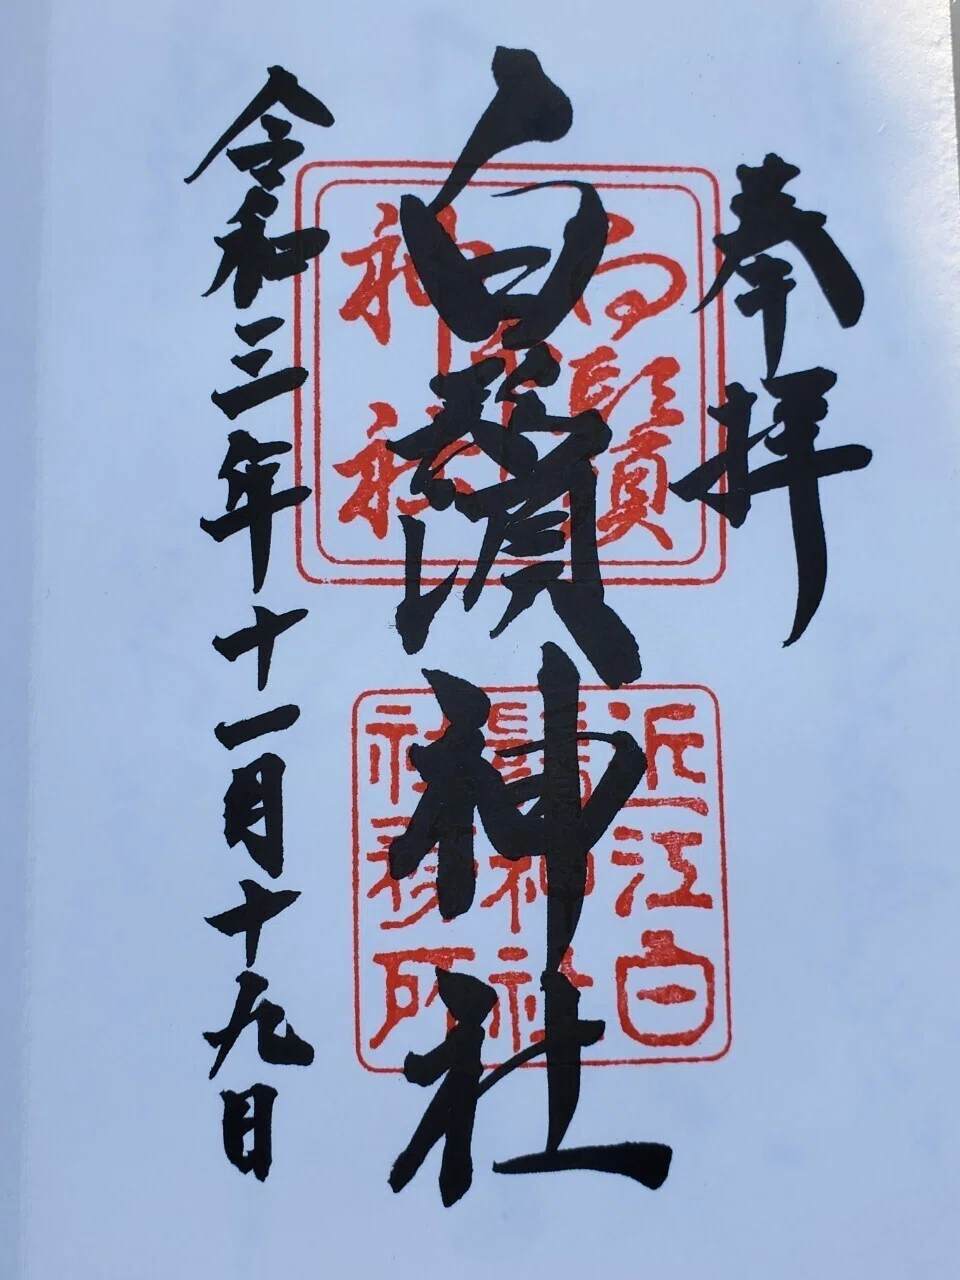 奉拝
白鬚神社
令和三年十一月十九日
白鬚
神社
近江白
鬚神社
社務所